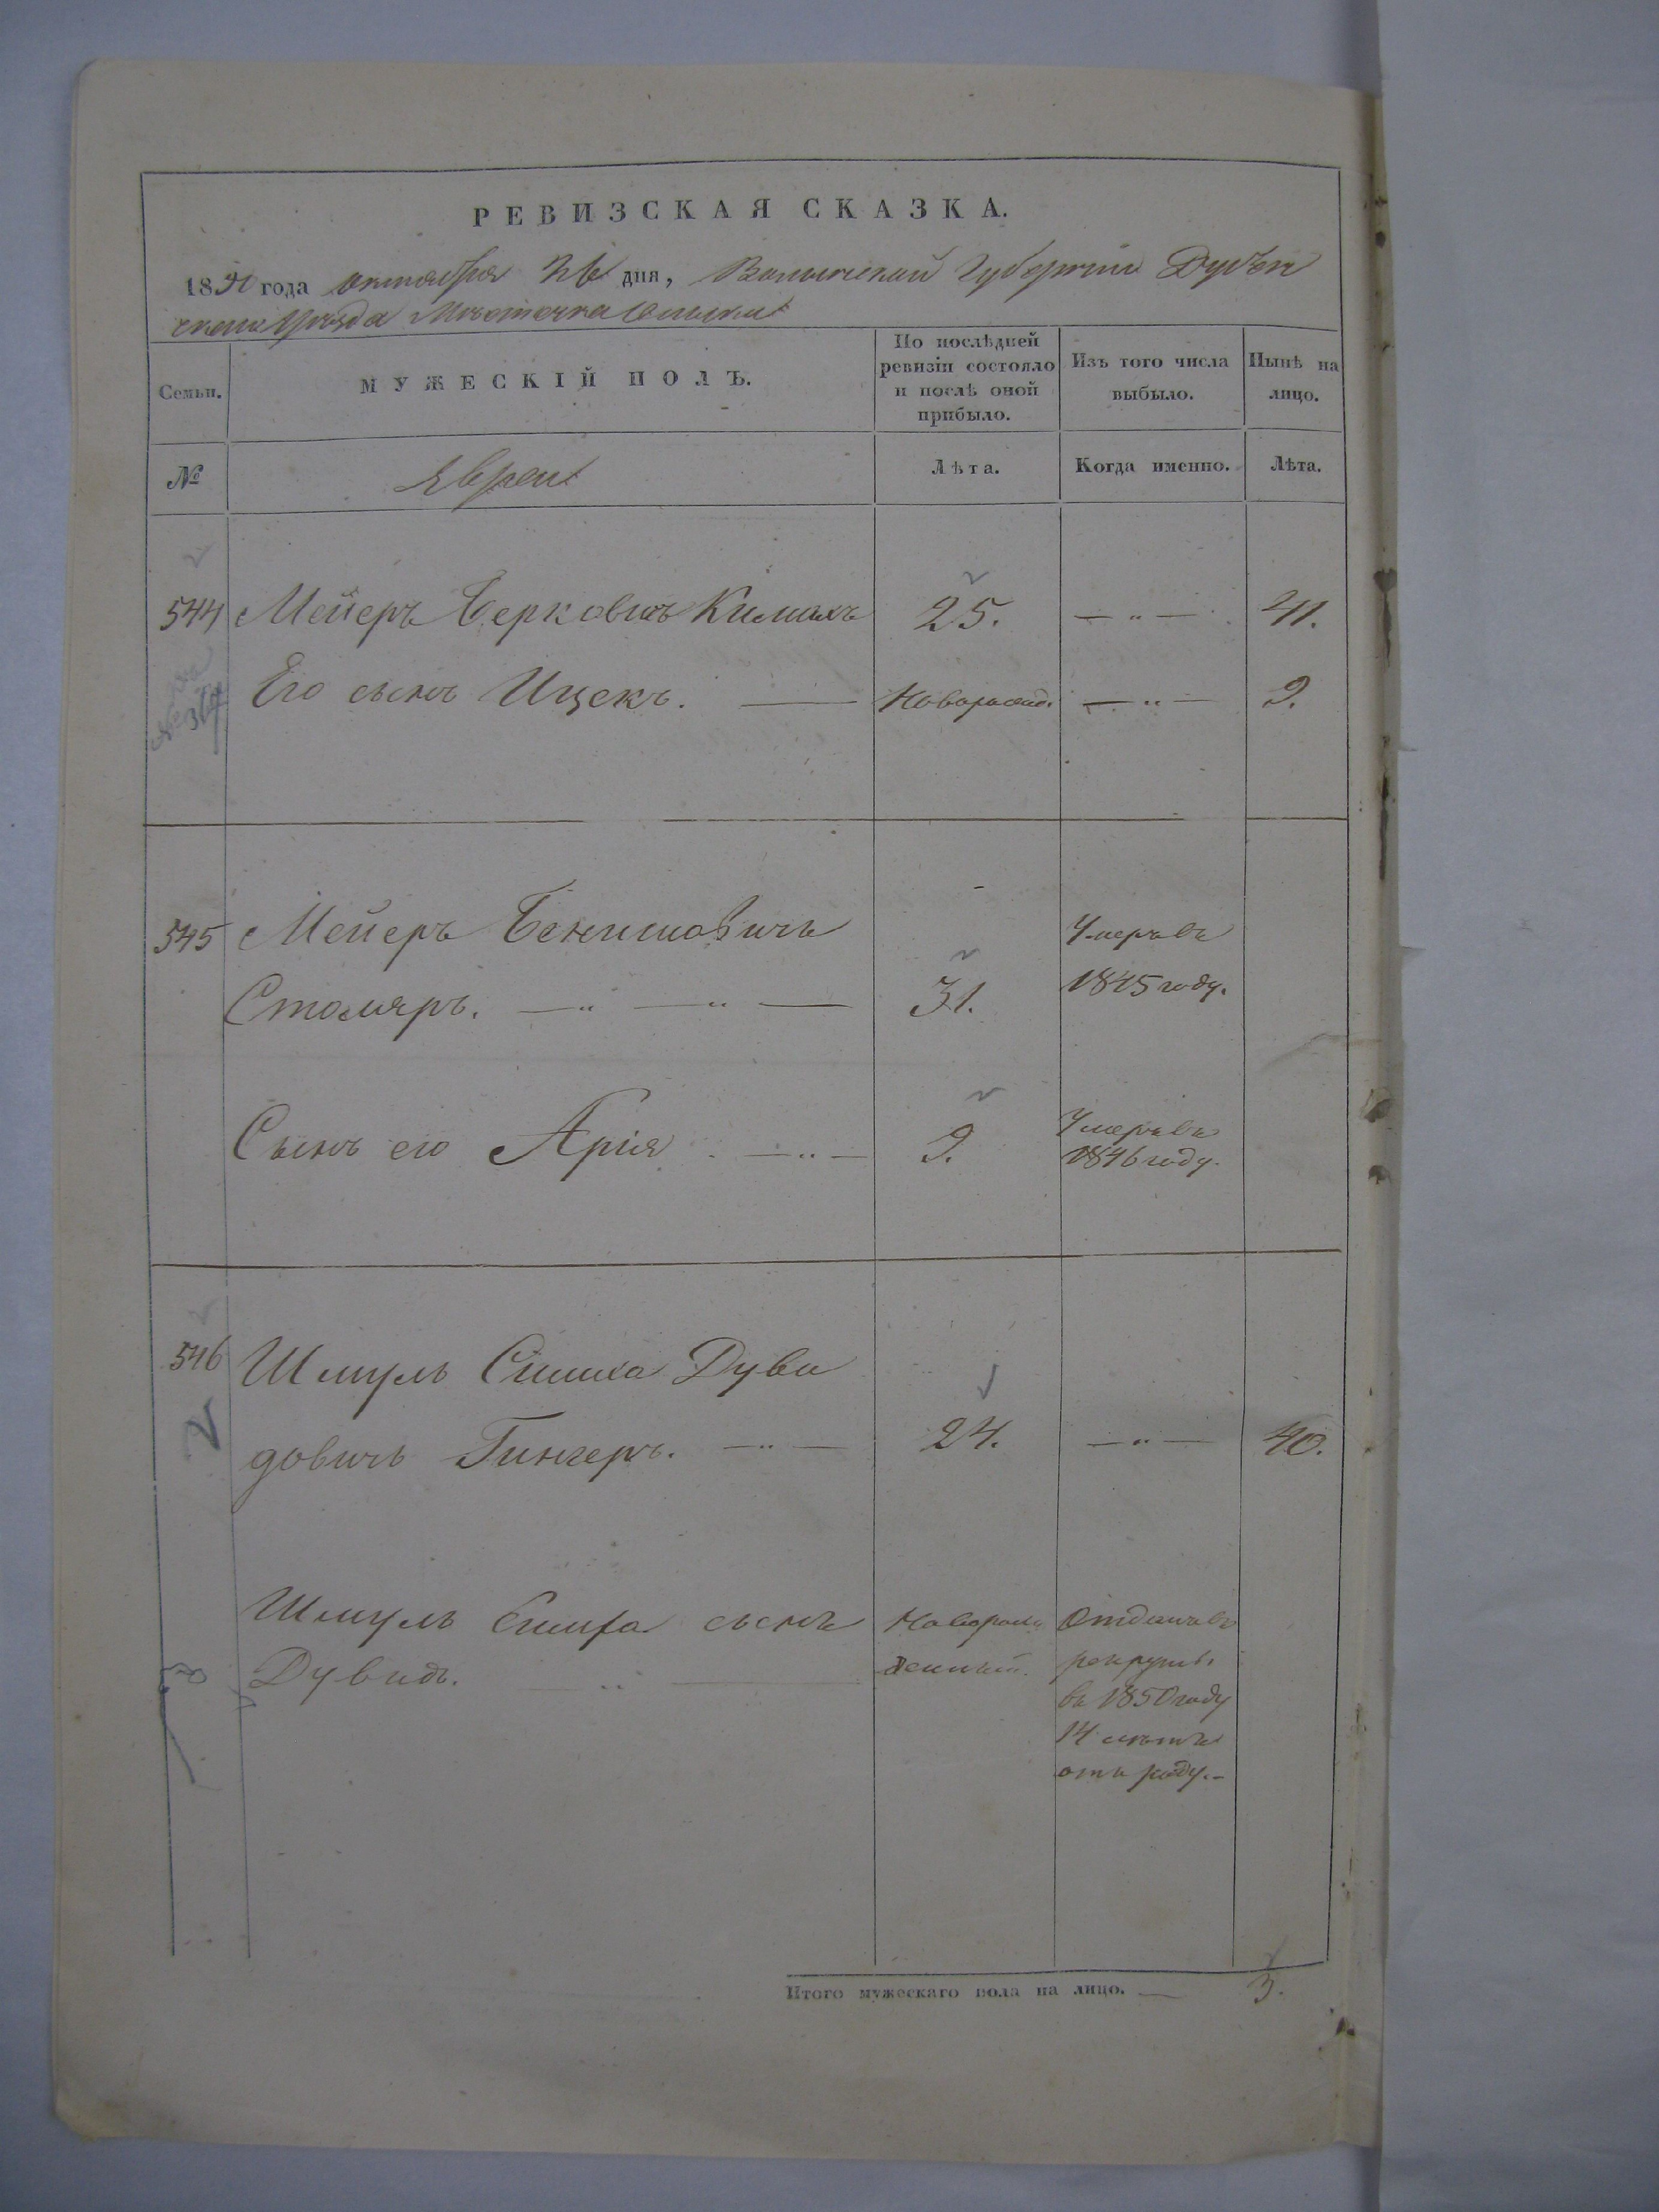 РЕВИЗСКАЯ СКАЗКА.
1850 года октября 26 дня, Волынской Губернии Дубен
скаго Уѣзда Мѣстечка Олыки
Семьи.
МУЖЕСКІЙ ПОЛЪ.
По послѣдней
ревизіи состояло
и послѣ оной
прибыло.
Изъ того числа
выбыло.
Нынѣ на
лицо.
№
Евреи
Лѣта.
Когда именно.
Лѣта.
544 Мейеръ Берковичъ 25. — „ — 41.
Его сынъ Ицекъ. — Новорожд. — „ — 9.
545 Мейеръ Бенишовичъ Умеръ въ
Столяръ. — „ — „ — 31. 1845 году.
Сынъ его Арія — „ — 9. Умеръ въ
1846 году.
546 Шмуль Симха Дуви
довичъ Гингеръ. — „ — 24. — „ — 40.
Шмуль Симха сынъ Новорож Отданъ въ
Дувидъ. — „ — денный. рекруты
въ 1850 году
14 лѣтъ
отъ роду. —
Итого мужескаго пола на лицо. — 3.